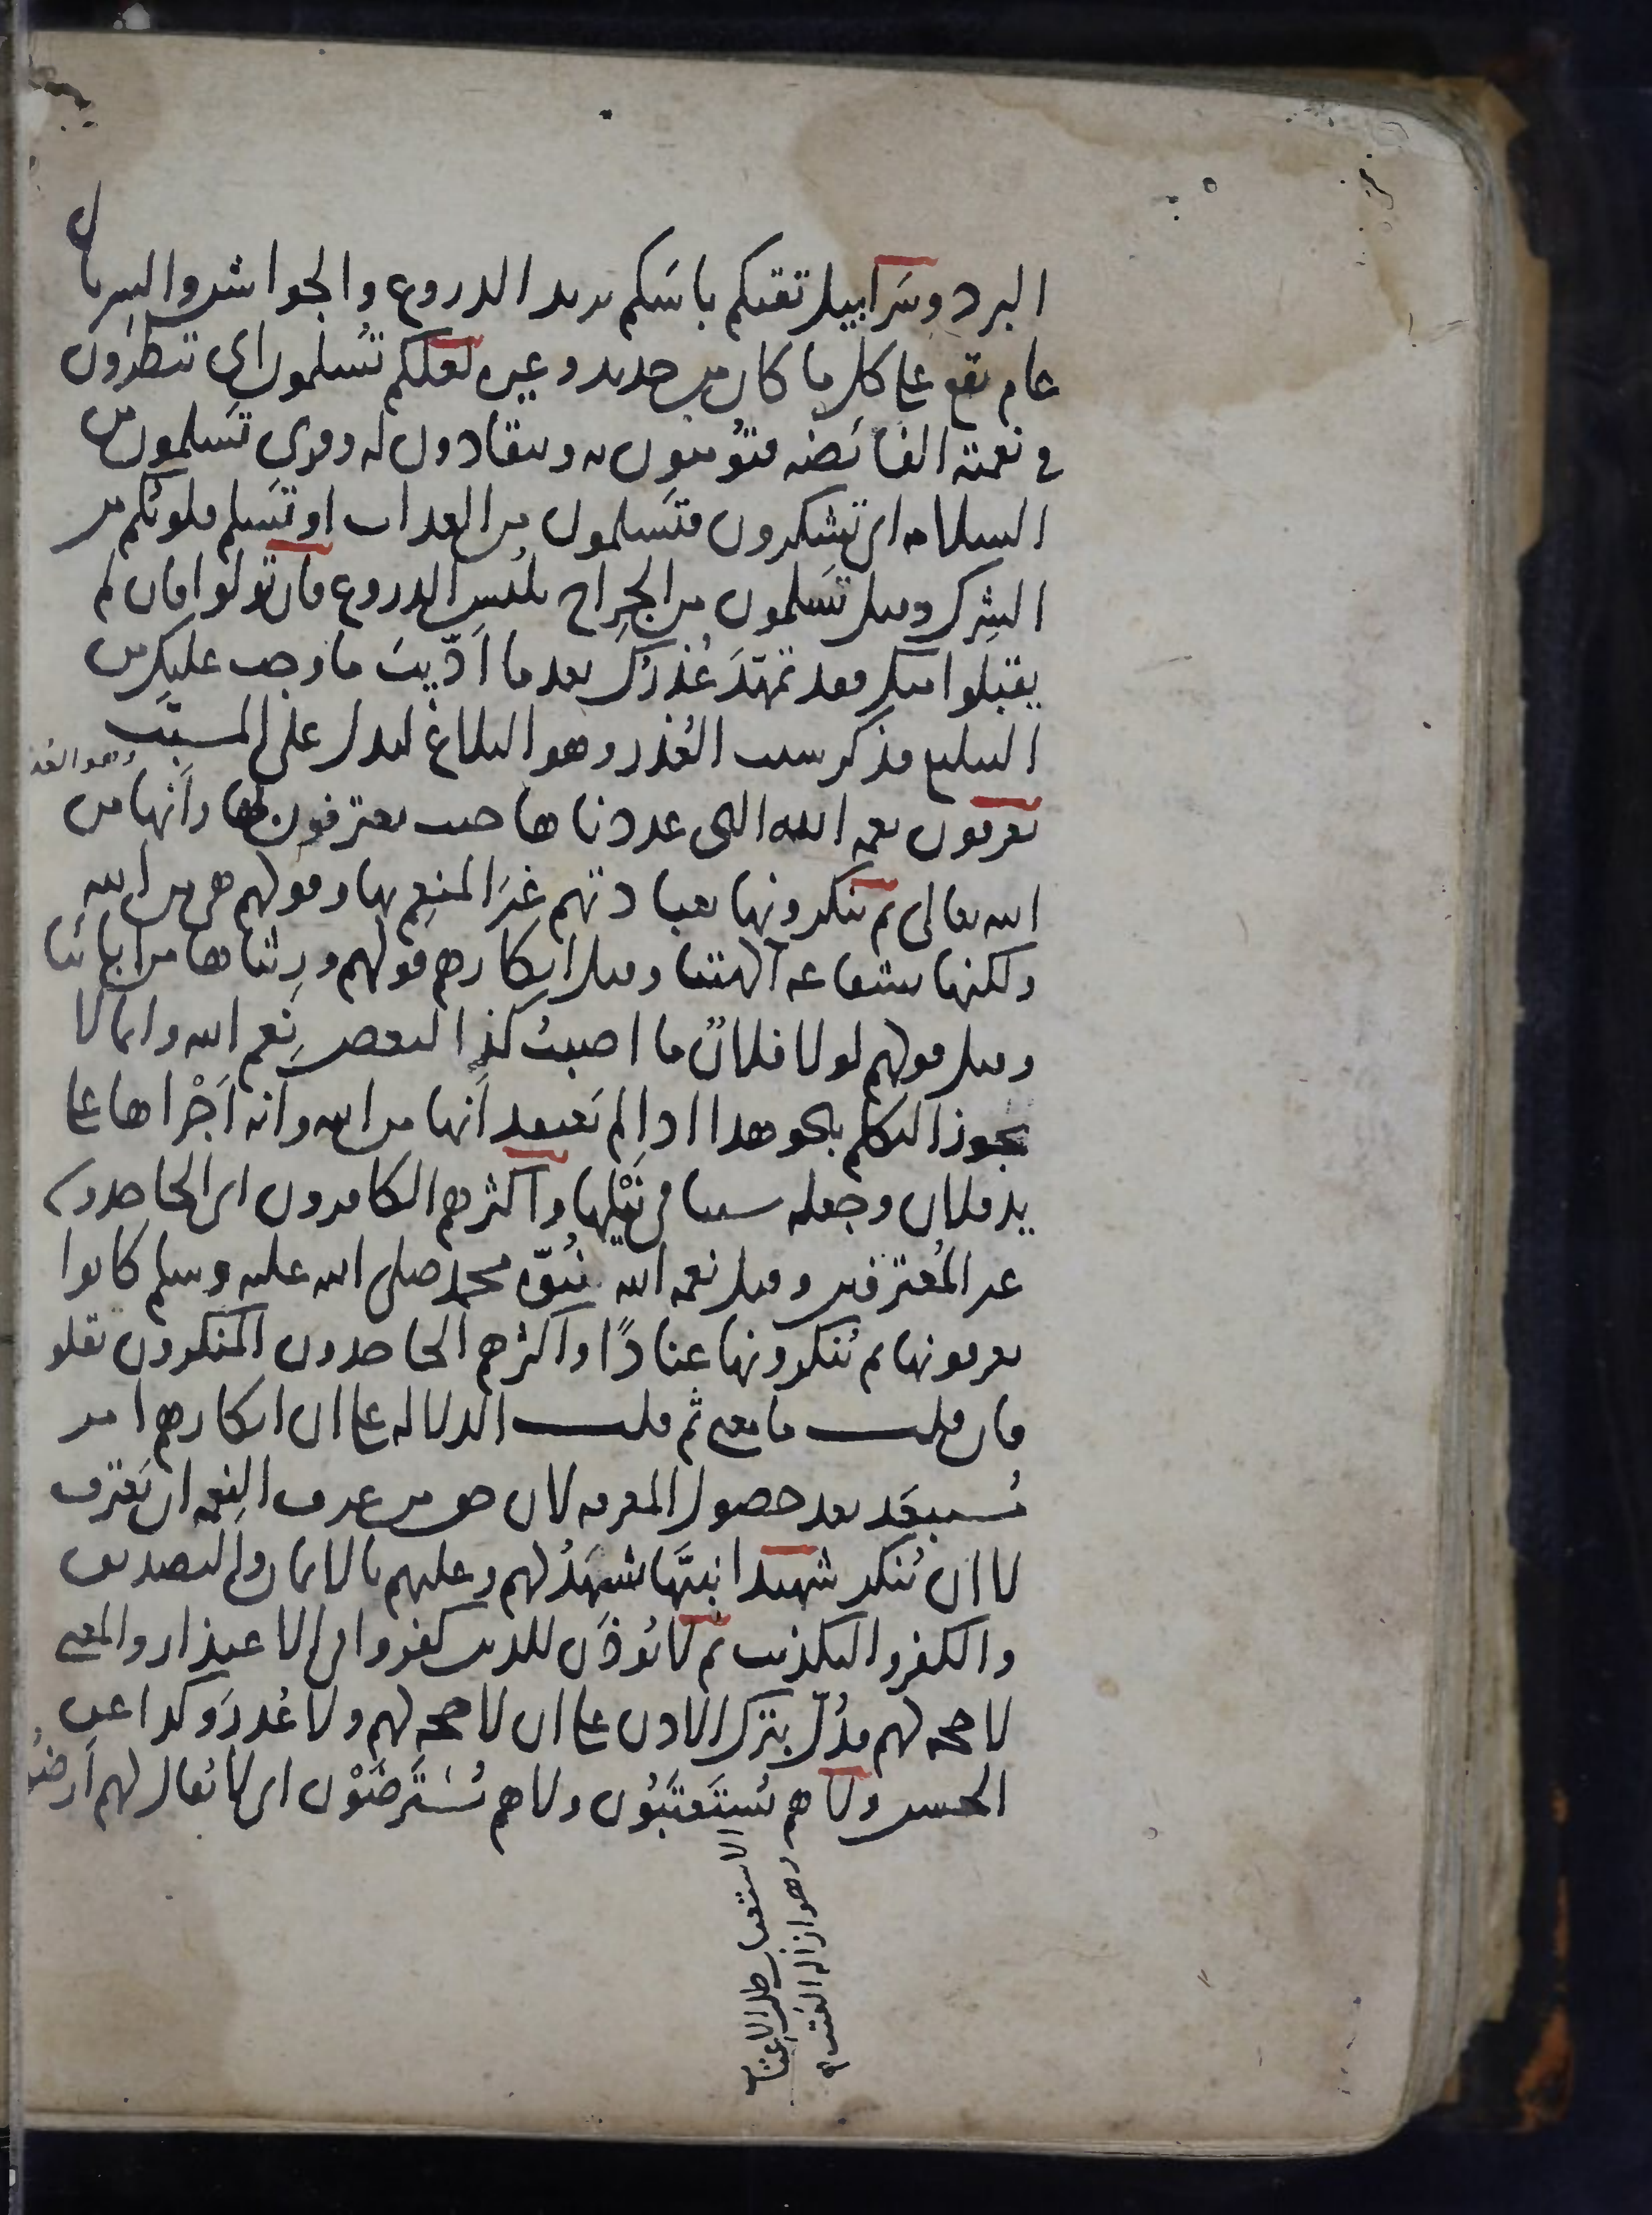 البرد وسَرابيل تقيكم باسَكم يريد الدروع والجواشن والسربال
عام يقع على كل ما كان من حديد وغيره لعلكم تُسلمون اي تنظرون
في نعمته الفائضه فتؤمنون به وتنقادون له وقرئ تَسلمون من
السلامه اي تشكرون فتَسلمون من العذاب او تَسلم قلوبكم من
الشرك وقيل تَسلمون من الجراح بلُبس الدروع فان تولوا فان لم
يقبلوا منك فقد تمهّدَ عُذرُك بعد ما أدّيتَ ما وجب عليك من
التبليغ فذكر سبب العُذر وهو البلاغ ليدل على المسبَّب
وهو العذر
يعرفون نعمه الله التي عددناها حيث يعترفون بها وأنها من
الله تعالى ثم ينكرونها بعبادتهم غيرَ المنعِم بها وقولهم هي من الله
ولكنها بشفاعه آلهتنا وقيل انكارهم قولهم ورِثناها من ابائنا
وقيل قولهم لولا فلانٌ ما اصبتُ كذا لبعض نِعم الله وانما لا
يجوز التكلم بنحو هذا اذا لم يَعتقد أنها من الله وانه أَجْراها على
يد فلان وجعله سببا في نَيْلها وأكثرهم الكافرون اي الجاحدون
غير المُعترفين وقيل نعمه الله نبُوّه محمد صلى الله عليه وسلم كانوا
يعرفونها ثم يُنكرونها عنادًا وأكثرهم الجاحدون المنكرون بقلو
فان قلت ما معنى ثم قلت الدلاله على ان انكارهم امر
مُستبعَد بعد حصول المعرفه لان حق من عرف النِعمه ان يَعترف
لا ان يُنكر شهيدا نبيًّا يشهَدُ لهم وعليهم بالايمان والتصديق
والكفر والتكذيب ثم لا يُوذَن للذين كفروا في الاعتذار والمعنى
لا حجه لهم فدُلّ بترك الاذن على ان لا حجه لهم ولا عُذرَ وكذا عن
الحسن ولا هم يُستَعتَبُون ولا هم يُستَرضَوْن اي لا يُقال لهم أرضُوا
الاستعتاب طلب الاعتاب
وهو ازاله العَتب